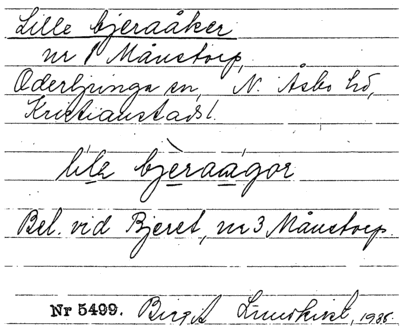 Lille bjeraåker
nr 1 Månstorp,
Oderljunga sn, N. Åsbo hd,
Kristianstads l.
lìlə bjèraågor
Bel. vid Bjeret, nr 3 Månstorp.
Nr 5499. Birgit Lundkvist, 1935.